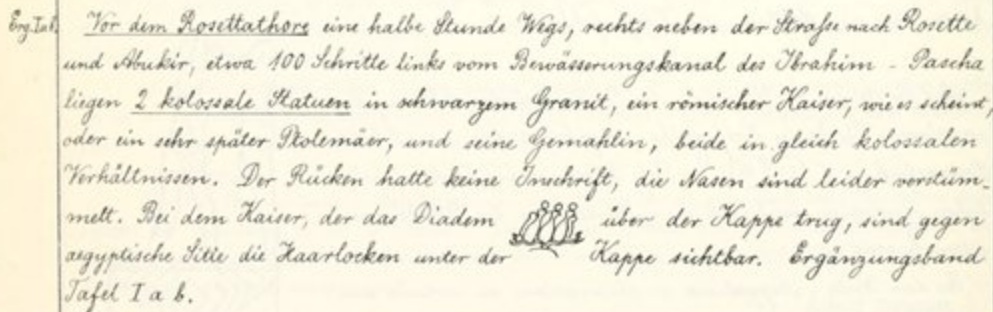 Erg. I ab. Vor dem Rosettathore eine halbe Stunde Wegs, rechts neben der Strasse nach Rosette
und Abukir, etwa 100 Schritte links vom Bewässerungskanal des Ibrahim - Pascha
liegen 2 kolossale Statuen in schwarzem Granit, ein römischer Kaiser, wie es scheint,
oder ein sehr später Ptolemäer, und seine Gemahlin, beide in gleich kolossalen
Verhältnissen. Der Rücken hatte keine Inschrift, die Nasen sind leider verstüm-
melt. Bei dem Kaiser, der das Diadem über der Kappe trug, sind gegen
aegyptische Sitte die Haarlocken unter der Kappe sichtbar. Ergänzungsband
Tafel I a b.